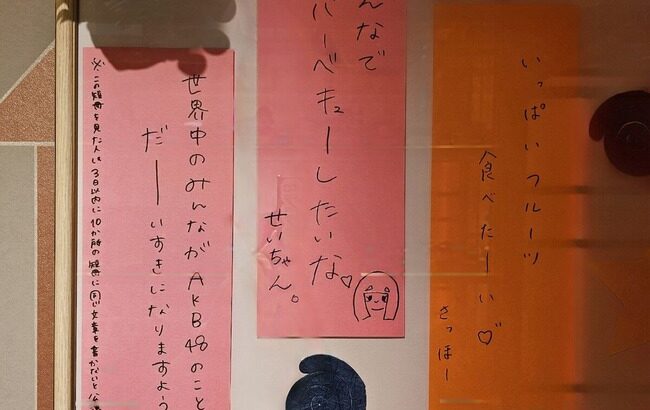 いっぱいフルーツ
食べたーい♡
さっほー
んなで
バーベキューしたいな♡
せいちゃん。
世界中のみんながAKB48のこと
だーいすきになりますよう
※この短冊を見た人は3日以内に10か所の短冊に同じ文章を書かないと